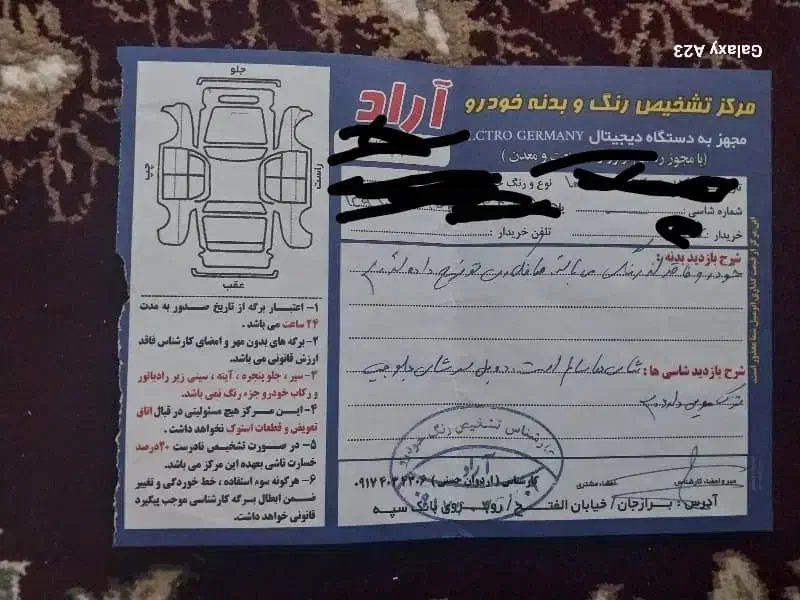 Galaxy A23
مرکز تشخیص رنگ و بدنه خودرو
آراد
مجهز به دستگاه دیجیتال CTRO GERMANY.
(با مجوز و معدن)
نوع و رنگ
شماره شاسی :
خریدار :
تلفن خریدار :
شرح بازدید بدنه :
خودرو فاقد رنگ توضیح داده شد
شرح بازدید شاسی ها : شاسی ها سالم است
دارد
کارشناس تشخیص رنگ خودرو
آراد
مهر و امضاء کارشناس
امضاء مشتری
کارشناس (اردوان حسنی) ۰۹۱۷۴۰۳۴۲۰۶
آدرس : برازجان/ خیابان الفتح / روبروی بانک سپه
این مرکز از قیمت گذاری اتومبیل شما معذور است.
جلو
چپ
راست
عقب
۱- اعتبار برگه از تاریخ صدور به مدت
۲۴ ساعت می باشد .
۲- برگه های بدون مهر و امضای کارشناس فاقد
ارزش قانونی می باشد.
۳- سپر ، جلو پنجره ، آینه ، سینی زیر رادیاتور
و رکاب خودرو جزء رنگ نمی باشد.
۴- این مرکز هیچ مسئولیتی در قبال اتاق
تعویض و قطعات استوک نخواهد داشت .
۵- در صورت تشخیص نادرست ۲۰درصد
خسارت ناشی بعهده این مرکز می باشد.
۶- هرگونه سوء استفاده ، خط خوردگی و تغییر
ضمن ابطال برگه کارشناسی موجب پیگیرد
قانونی خواهد داشت.